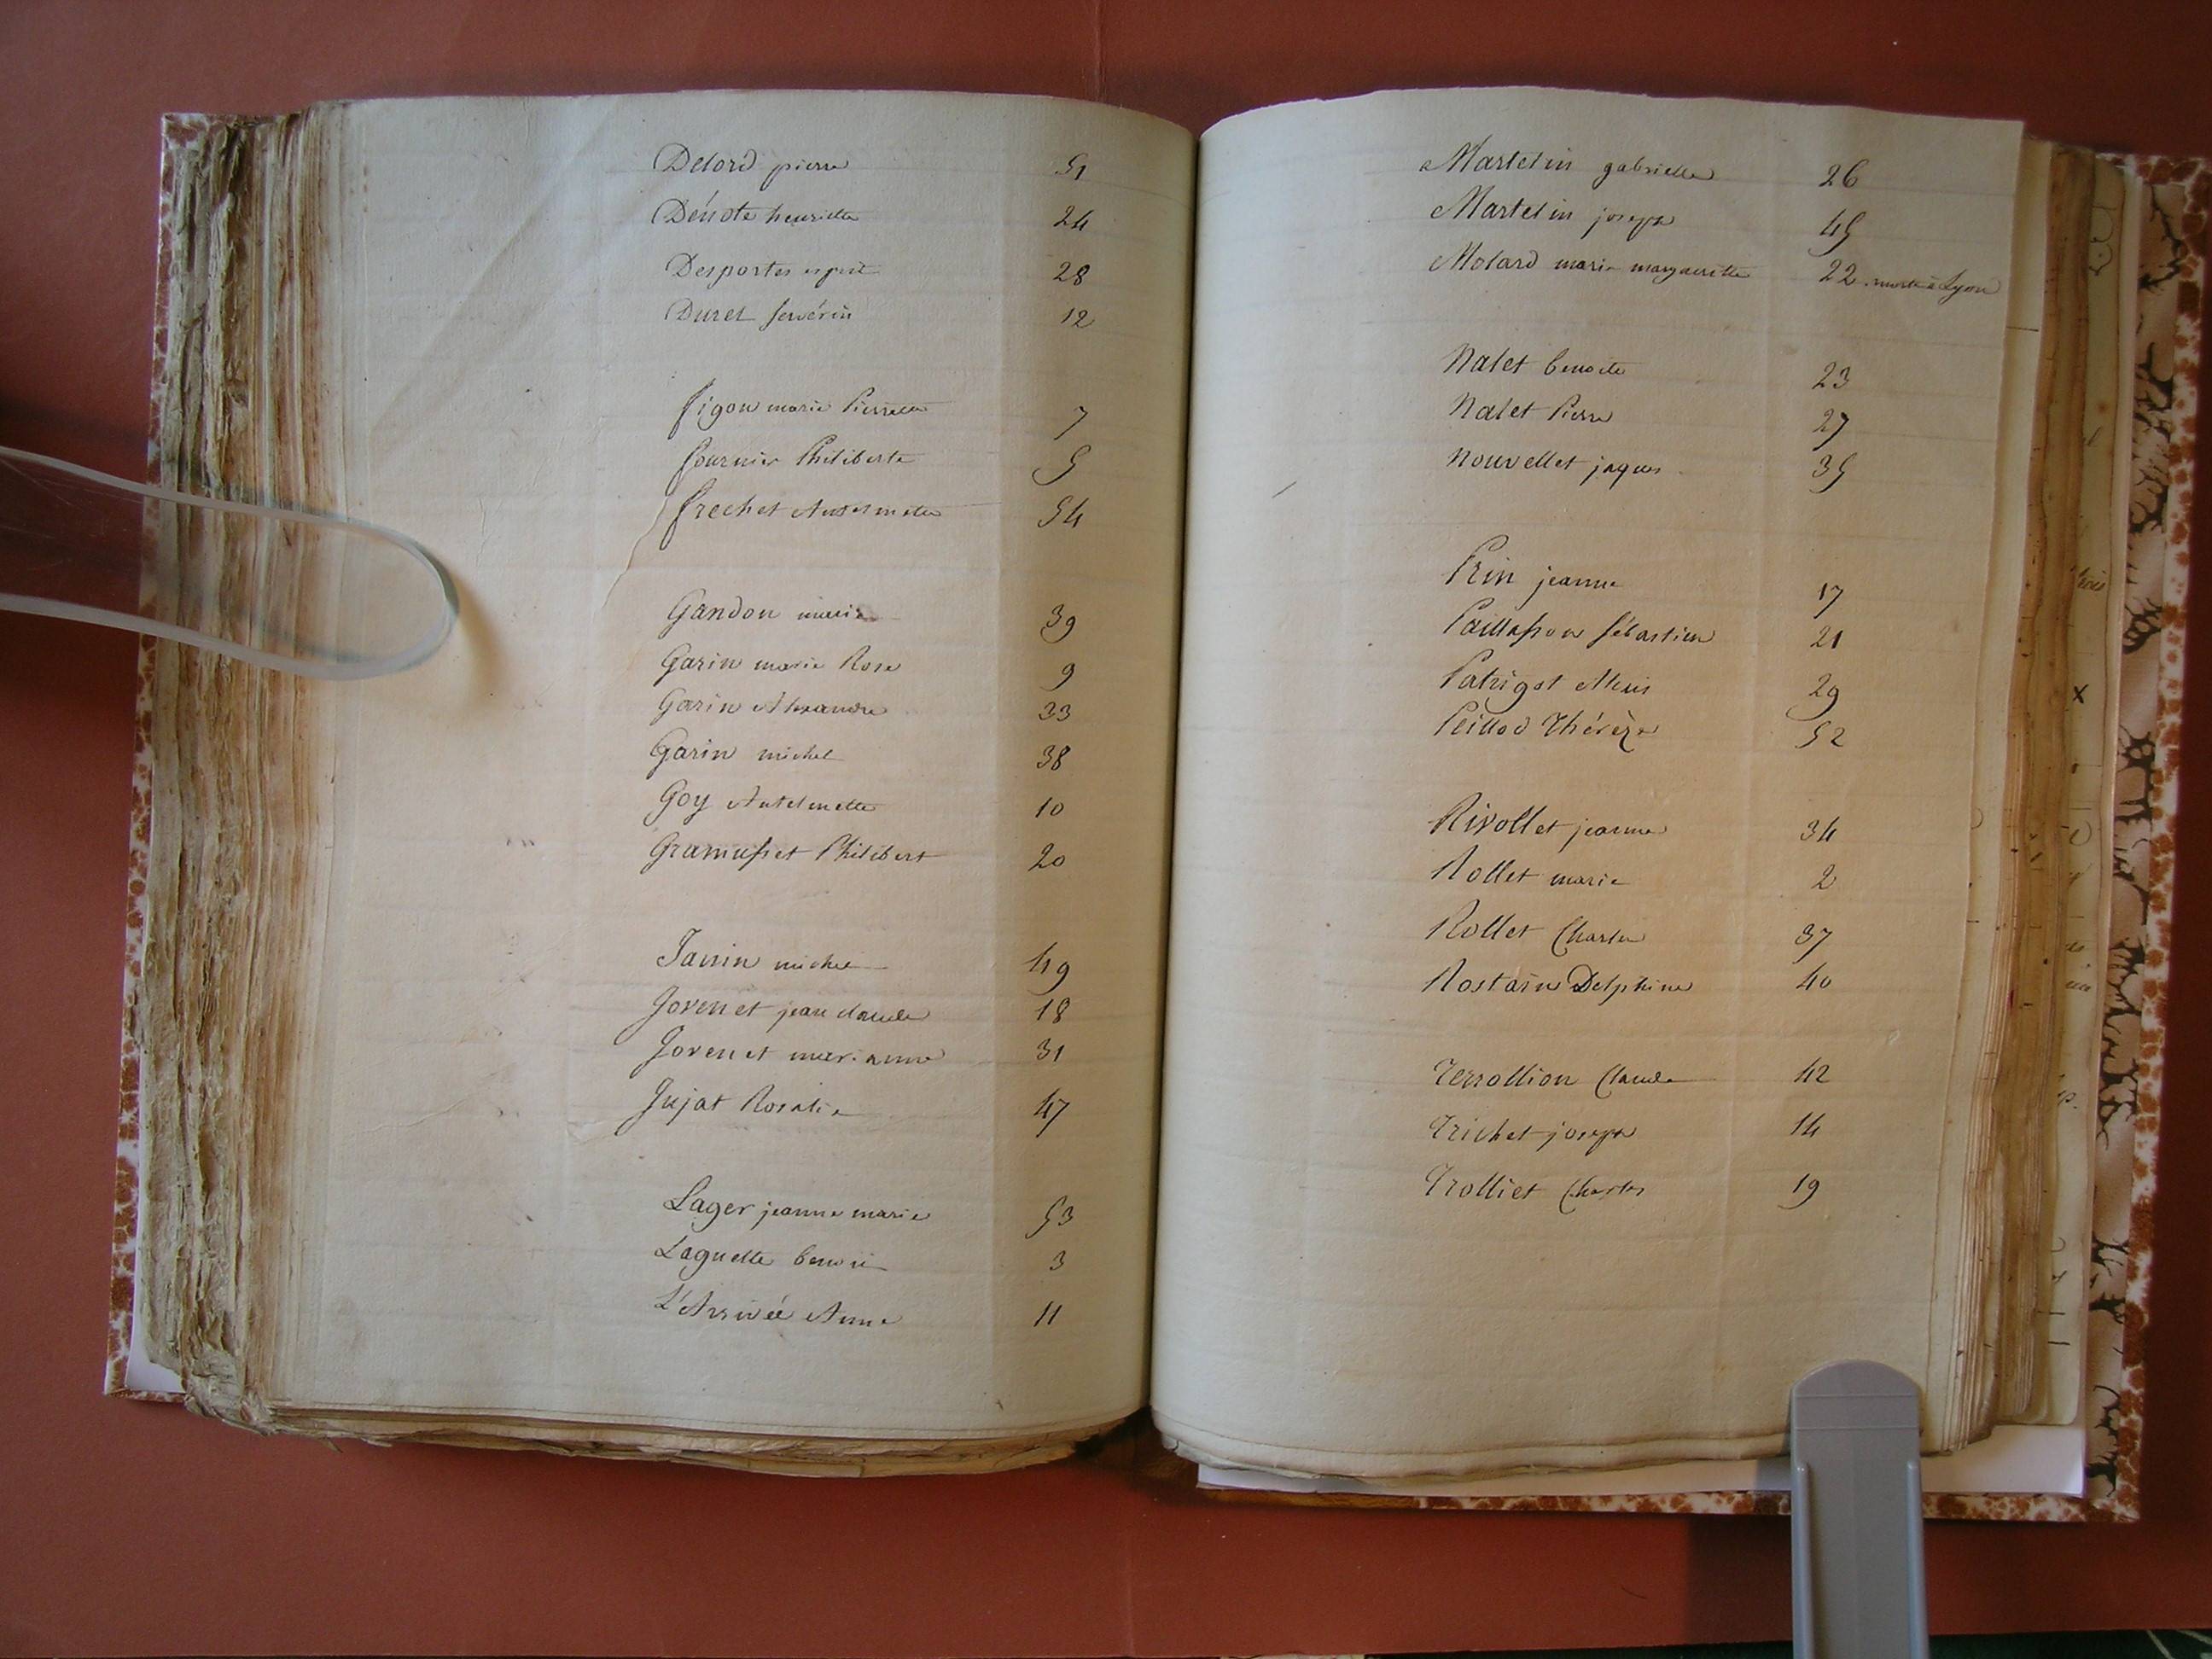 Delord pierre 51
Dénote henriette 24
Desportes esprit 28
Duret sévérin 12
figon marie Pierrette 7
fournier Philiberte 5
frechet Antelmette 54
Gandon marie 39
Garin marie Rose 9
Garin Alexandre 33
Garin michel 38
Goy Antelmette 10
Gramusset Philibert 20
Janin michel 49
Jovenet jean claude 18
Jovenet marianne 31
Jujat Rosalie 47
Lager jeanne marie 53
Laguette benoit 3
L'Arrivée Anne 11
Martelin gabrielle 26
Martelin joseph 45
Molard marie margueritte 22 morte à Lyon
Nalet benoite 23
Nalet Pierre 27
Nouvellet jaques 35
Prin jeanne 17
Paillasson sébastien 21
Patrigot Alexis 29
Peillod Thérèze 52
Rivollet jeanne 34
Rollet marie 2
Rollet Charles 37
Rostain Delphine 40
Terrollion Claude 42
Trichet joseph 14
Trolliet Charles 19
x